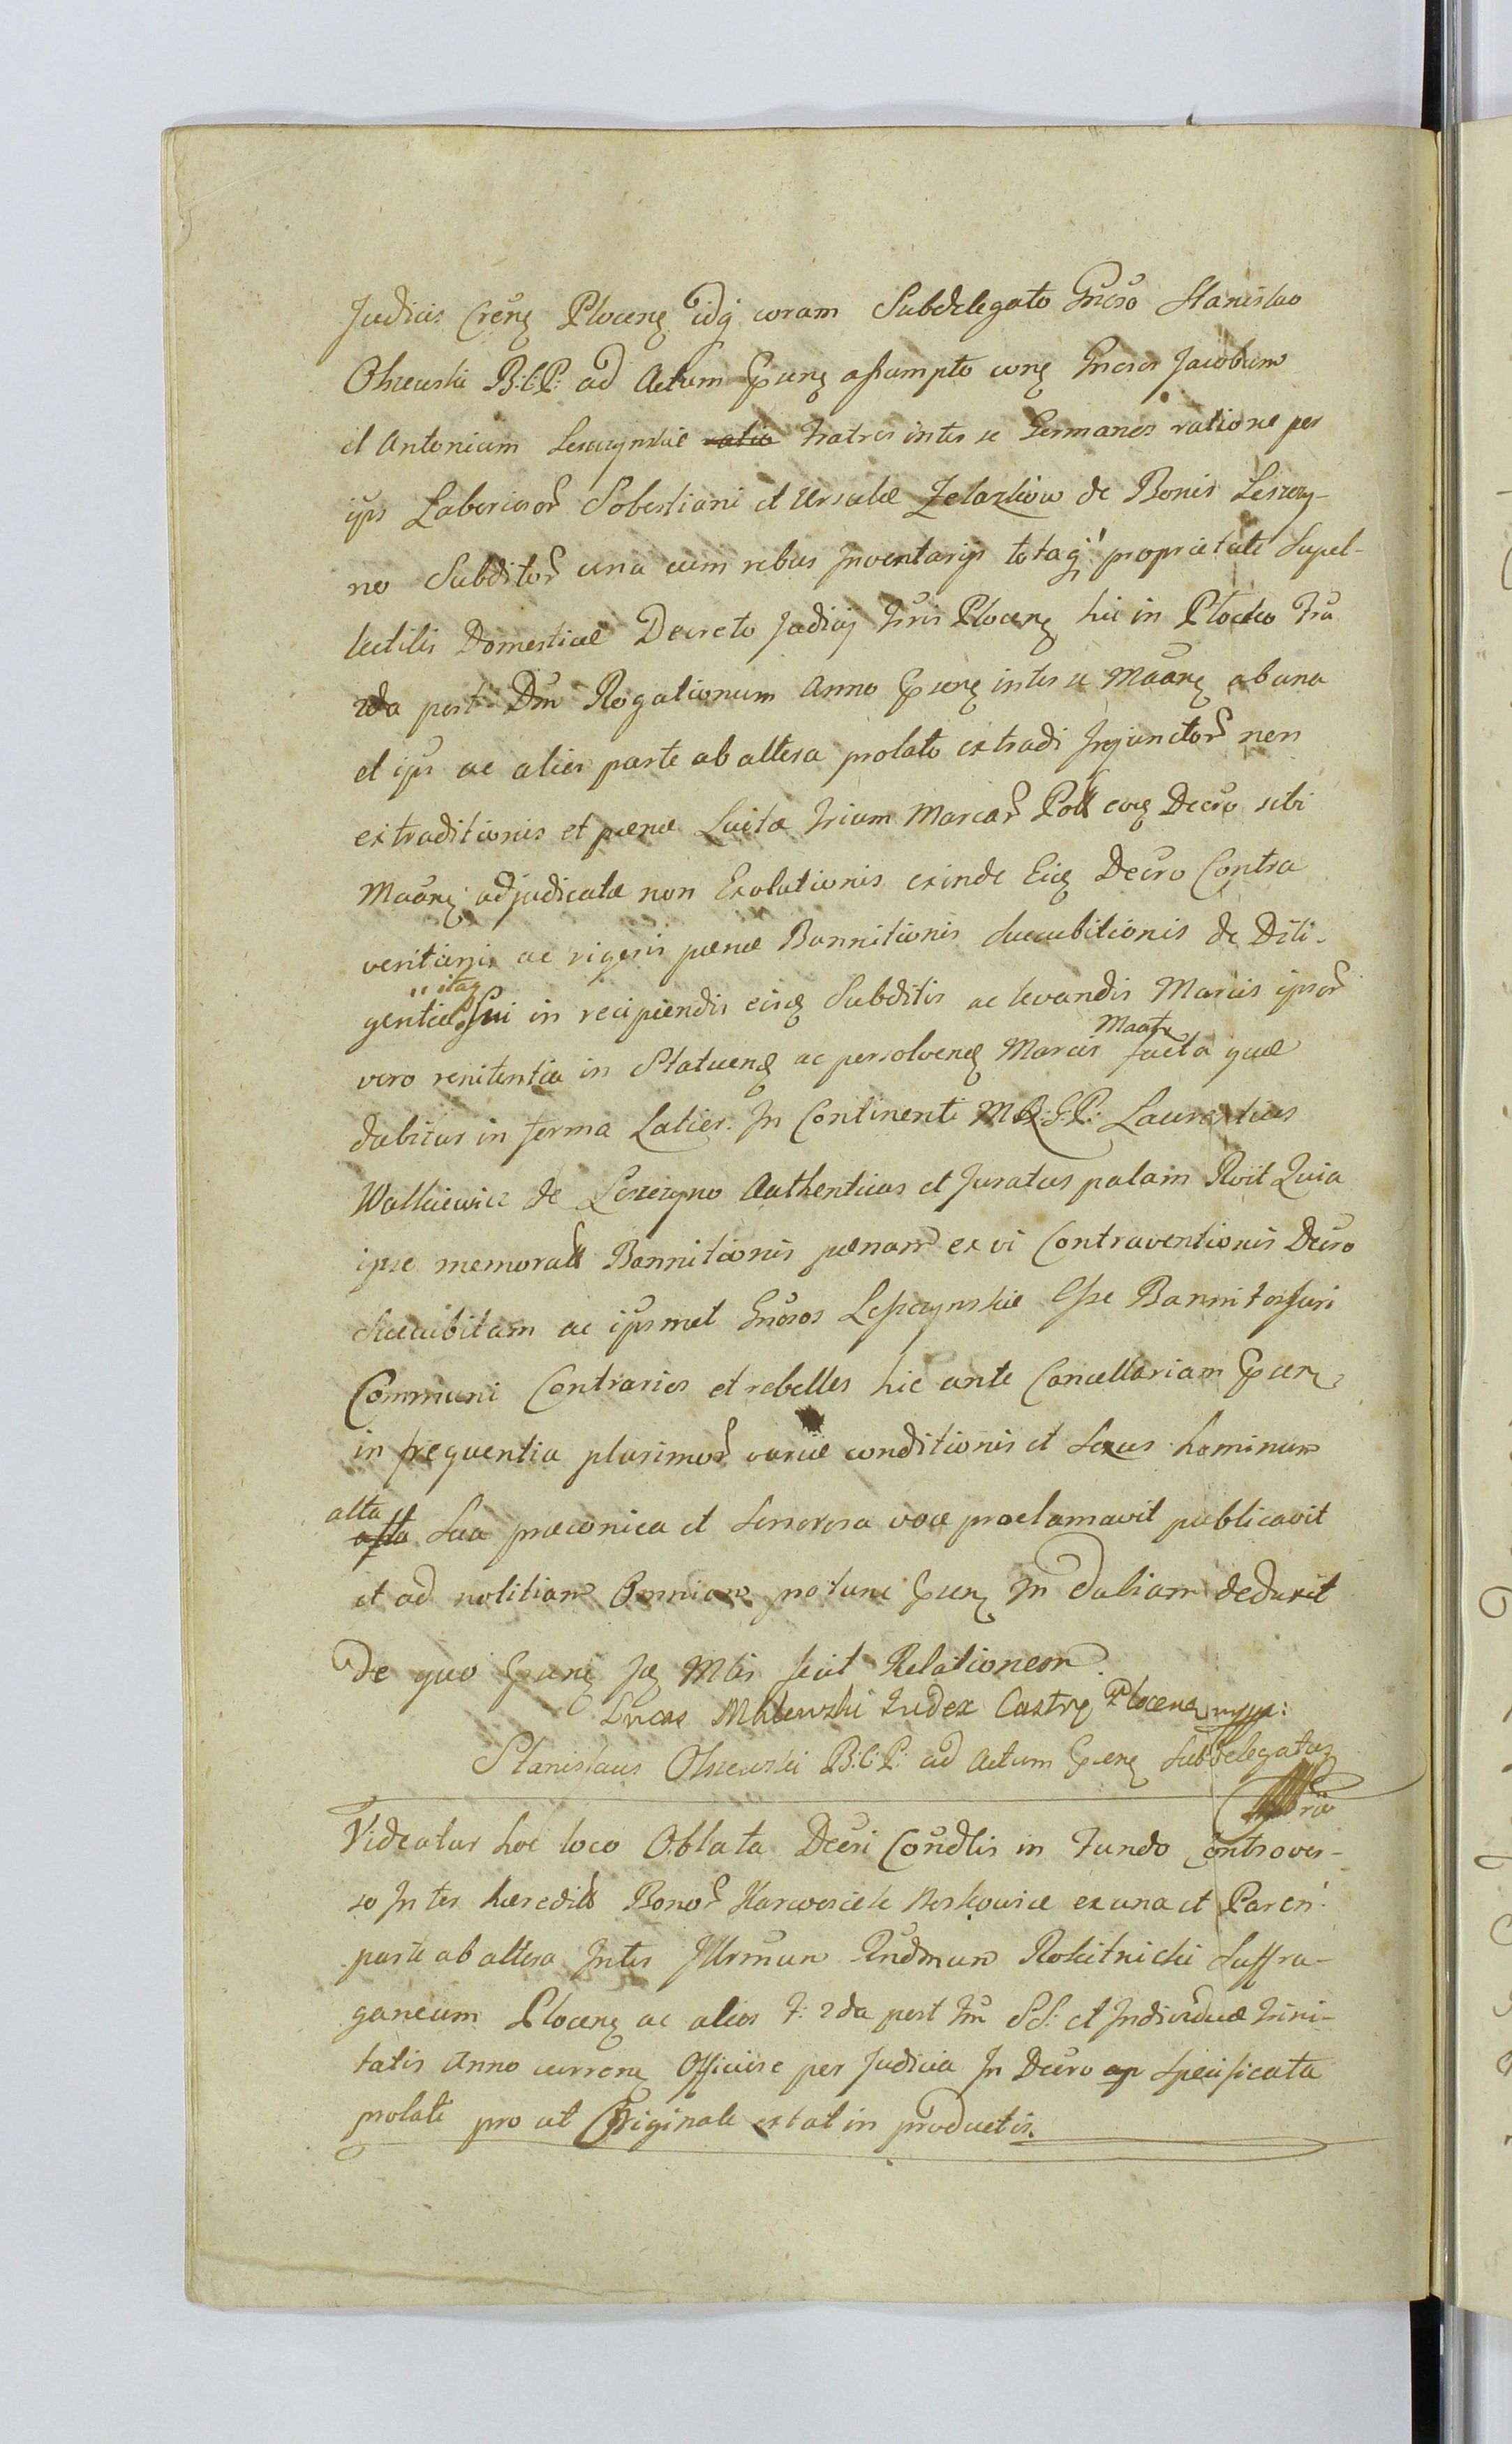 Judicis Crenę Plocenę idq coram Subdelegato Gnoso Stanislao
Olszewski B:C:P: ad Actum Pp̃um assumpto conę Gnosos Jacobum
et Antonium Leszczynskie ratio Fratres inter se Germanos ratione per
ips Laboriosor Sobestiani et Ursulæ Zelazkow de Bonis Leszczy-
no Subditor una cum rebus Inventarijs totaq proprietate Supel-
lectilis Domesticæ Decreto Judicij Tris Plocenę hic in Plocko Fria
2da post Dm Rogationum Anno inter se Maanę ab una
et ips ac alios parte ab altera prolato extradi Injunctor non
extraditionis et pænæ Luitæ Trium Marcar Poll eoę Decro sibi
Maanę adjudicatæ non Exolutionis exinde Eię Decro Contra
ventionis ac rigoris pænæ Bannitionis Succubitionis de Dili-
itaq
gentia Sui in recipiendis eisę Subditis ac levandis Marcis ipsor
Maatę
vero renitentia in Statuenę ac persolvenę Marcis facta quæ
dabitur in forma Latior. In Continenti M R:G:P: Laurentius
Walkiewicz de Leszczyno Authenticus et Juratus palam Rvit Quia
ipse memorall Bannitionis pænam ex vi Contraventionis Decro
Succubitam ac ipsmet Gnosos Leszczynskie Esse Bannitos Juri
Communi Contrarios et rebelles hic ante Cancellariam
in frequentia plurimor variæ conditionis et Sexus hominum
alta
Sua præconica et Sonorosa voce proclamavit publicavit
et ad notitiam Omnium protunc In Duliam deduxit
De quo Ję Mtis fecit Relationem
Lucas Malewski Judex Castrę Plocenę mpp:
Stanislaus Olszewski B:C:P: ad Actum Subdelegatus
Videatur hoc loco Oblata Decri Condlis in Fundo Controver-
so Inter hæredit Bonor Karwosieki Noskowice ex una et Paren
parte ab altera Inter Illrmum Rndmum Rokitnicki Suffra-
ganeum Plocenę ac alios F: 2da post Fm SS: et Individuæ Trini-
tatis Anno currenę Officiose per Judicia In Decro Speificata
prolati pro ut Originale extat in productis.